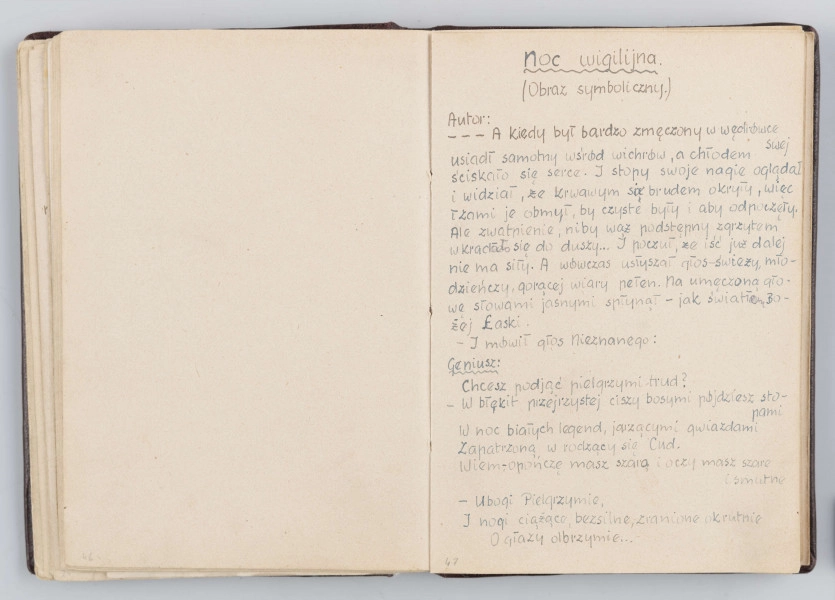 noc wigilijna.
(Obraz symboliczny.)
Autor:
– – – A kiedy był bardzo zmęczony w wędrówce
swej
usiadł samotny wśród wichrów, a chłodem
ściskało się serce. I stopy swoje nagie oglądał
i widział, że krwawym się brudem okryły, więc
łzami je obmył, by czyste były i aby odpoczęły.
Ale zwątpienie, niby wąż podstępny zgrzytem
wkradało się do duszy... I poczuł, że iść już dalej
nie ma siły. A wówczas usłyszał głos świeży, mło-
dzieńczy, gorącej wiary pełen. Na umęczoną gło-
wę słowami jasnymi spłynął – jak światłem Bo-
żej Łaski.
– I mówił głos Nieznanego:
Geniusz:
Chcesz podjąć pielgrzymi trud?
– W błękit przejrzystej ciszy bosymi pójdziesz sto-
pami
W noc białych legend, jarzącymi gwiazdami
Zapatrzoną w rodzący się Cud.
Wiem – opończę masz szarą i oczy masz szare
i smutne
– Ubogi Pielgrzymie,
I nogi ciążące, bezsilne, zranione okrutnie
O głazy olbrzymie...
46
47